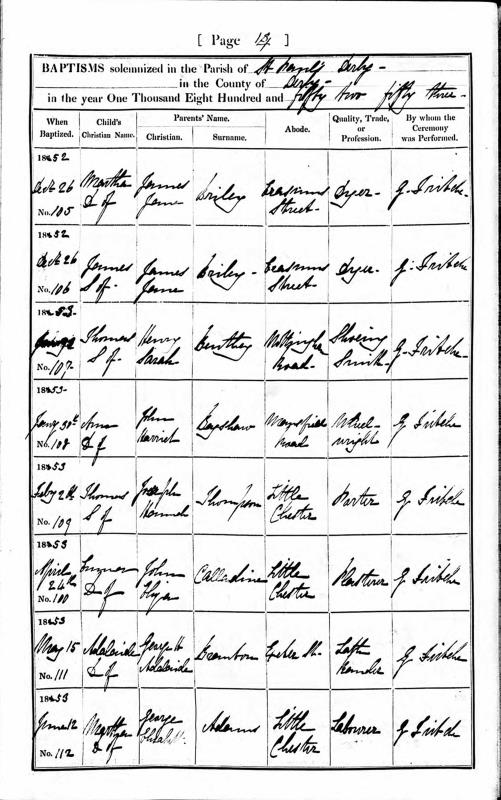 [ Page 14 ]
BAPTISMS solemnized in the Parish of St Pauls Derby -
in the County of Derby -
in the year One Thousand Eight Hundred and fifty two fifty three -
When Baptized. Child's Christian Name. Parents' Name. Christian. Surname. Abode. Quality, Trade, or Profession. By whom the Ceremony was Performed.
1852
Dec 26 Martha James Briley Erasmus Dyer - G. Fritche -
No. 105 D of Jane Street -
1852
Dec 26 James James Briley - Erasmus Dyer - G. Fritche
No. 106 S of Jane Street -
1853 -
Thomas Henry Nottingham Shoeing G. Fritche -
No. 107 S of Sarah Road - Smith -
1853 -
Jany 30th Ann John Bagshaw Mansfield Wheel- G Fritche
No. 108 D of Harriet Road wright
1853
Feby 2nd Thomas Joseph Thompson Little Porter G Fritche
No. 109 S of Hannah Chester
1853
April 24th John Calladine Little Plasterer G Fritche
No. 100 D of Chester
1853
May 15 Adelaide George H Bramton St. G Fritche
No. 111 D of Adelaide
1853
June 12 George Adams Little Labourer G Fritche
No. 112 D of Elizabeth Chester